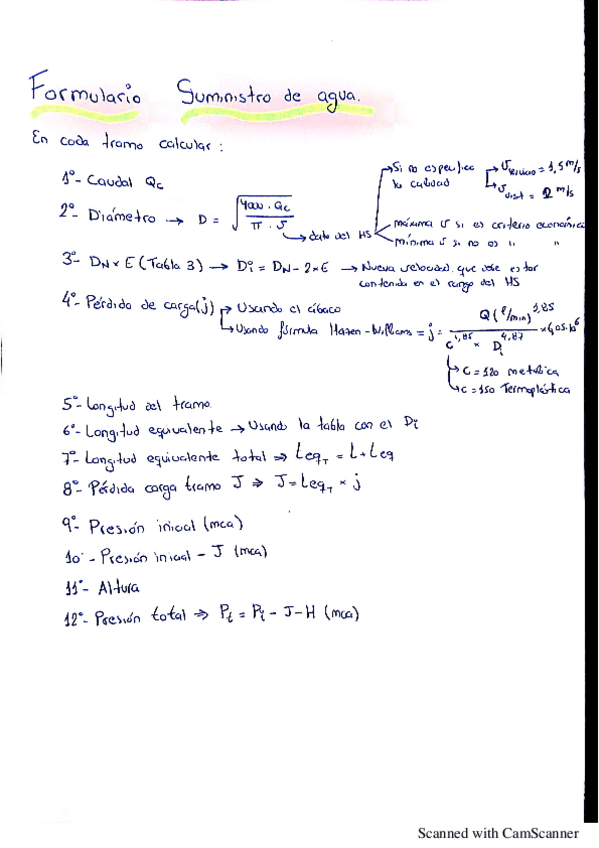 Formulario Suministro de agua.
En cada tramo calcular:
1º- Caudal Qc
2º- Diámetro → D = √(4000 · Qc / π · v) → dato del HS
Si no especifica la cabidad → v servicio = 1,5 m/s
→ v dist = 2 m/s
máxima v si es criterio económico
mínima v si no es " "
3º- DN x E (Tabla 3) → Di = DN - 2xE → Nueva velocidad que debe estar
contenida en el rango del HS
4º- Pérdida de carga (j) → Usando el ábaco
→ Usando fórmula Hazen-Williams = j = Q (l/min)^1,85 / C^1,85 x Di^4,87 x 6,05·10^6
→ C = 120 metálica
→ C = 150 Termoplástica
5º- Longitud del tramo.
6º- Longitud equivalente → Usando la tabla con el Di
7º- Longitud equivalente total ⇒ LeqT = L + Leq
8º- Pérdida carga tramo J ⇒ J = LeqT x j
9º- Presión inicial (mca)
10º- Presión inicial - J (mca)
11º- Altura
12º- Presión total ⇒ Pt = Pi - J - H (mca)
Scanned with CamScanner